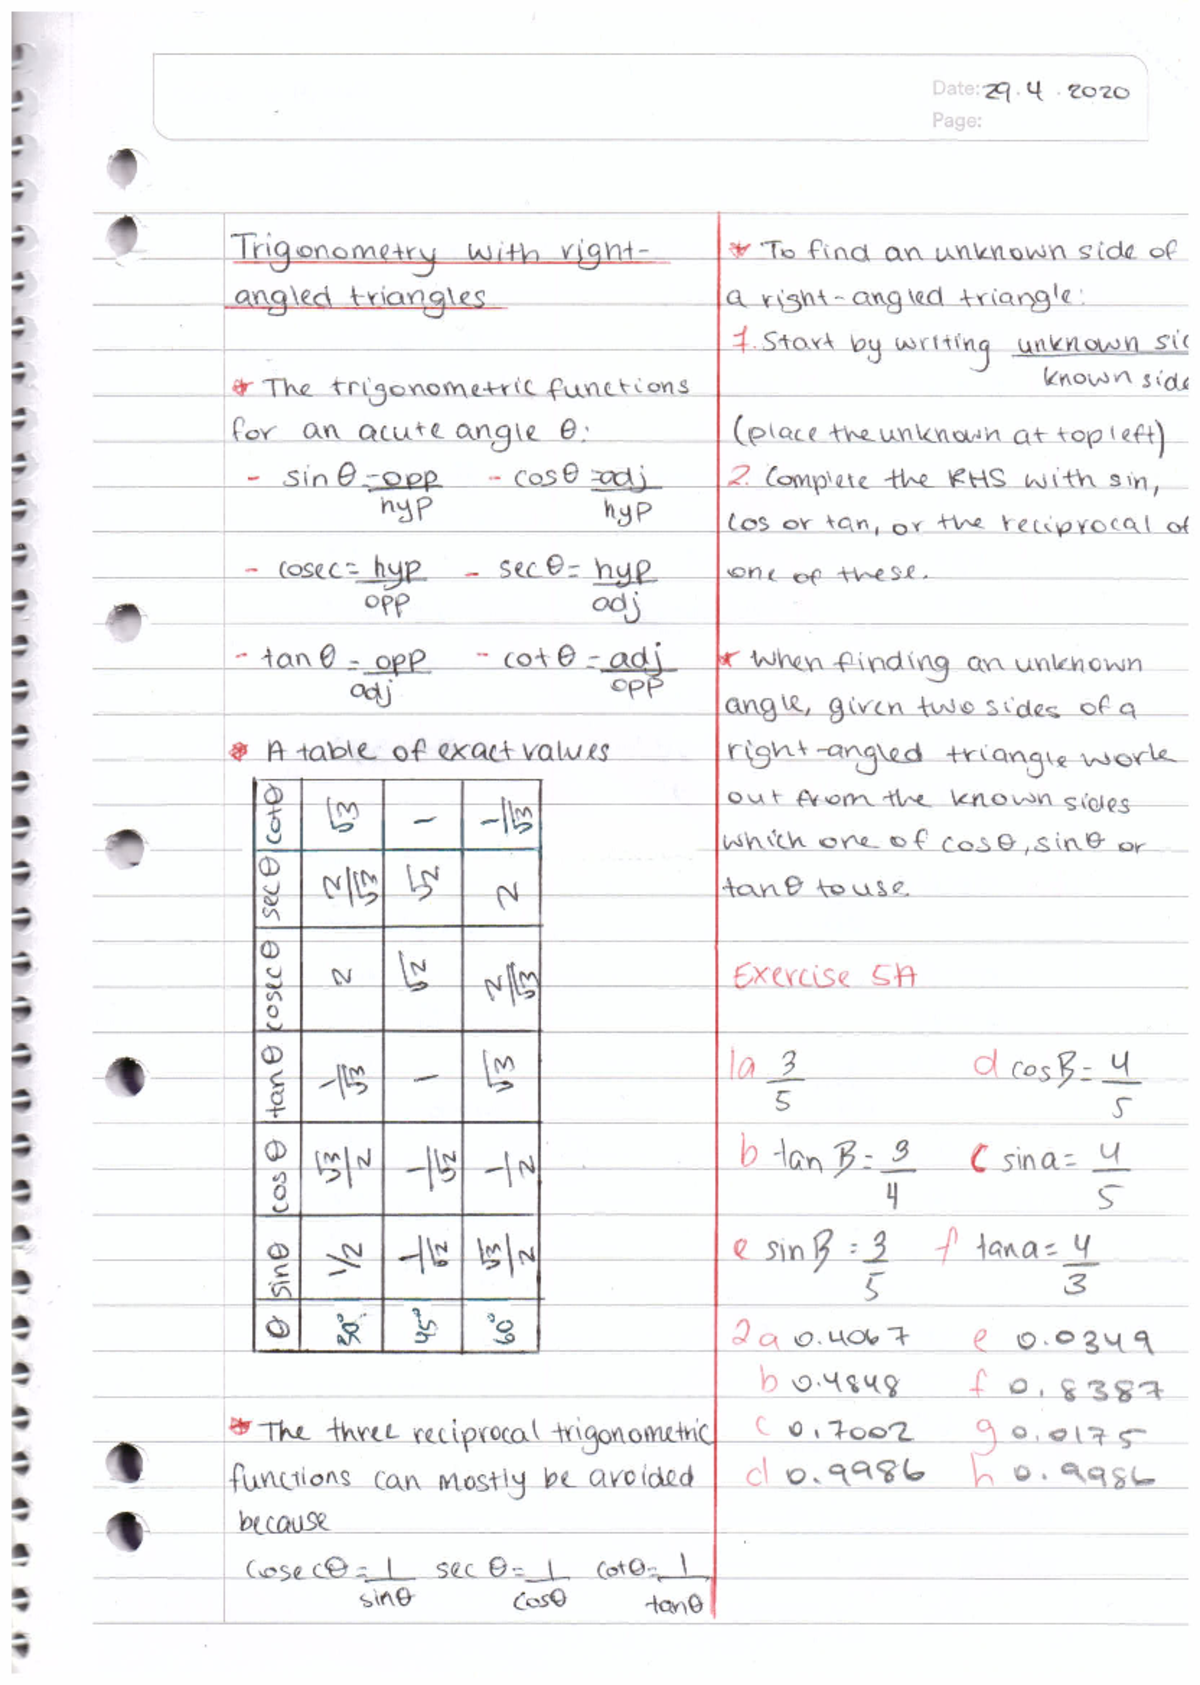 Date: 29.4.2020
Page:
Trigonometry with right-
angled triangles
* The trigonometric functions
for an acute angle θ:
- sin θ = opp/hyp - cos θ = adj/hyp
- cosec = hyp/opp - sec θ = hyp/adj
- tan θ = opp/adj - cot θ = adj/opp
* A table of exact values
θ sinθ cos θ tan θ cosec θ sec θ cotθ
30° 1/2 √3/2 1/√3 2 2/√3 √3
45° 1/√2 1/√2 1 √2 √2 1
60° √3/2 1/2 √3 2/√3 2 1/√3
* The three reciprocal trigonometric
functions can mostly be avoided
because
cosecθ = 1/sinθ sec θ = 1/cosθ cotθ = 1/tanθ
* To find an unknown side of
a right-angled triangle:
1. Start by writing unknown sid/known side
(place the unknown at top left)
2. Complete the RHS with sin,
cos or tan, or the reciprocal of
one of these.
* When finding an unknown
angle, given two sides of a
right-angled triangle work
out from the known sides
which one of cosθ, sinθ or
tanθ to use
Exercise 5A
1a 3/5 d cos B = 4/5
b tan B = 3/4 c sin a = 4/5
e sin B = 3/5 f tan a = 4/3
2a 0.4067 e 0.0349
b 0.4848 f 0.8387
c 0.7002 g 0.0175
d 0.9986 h 0.9986